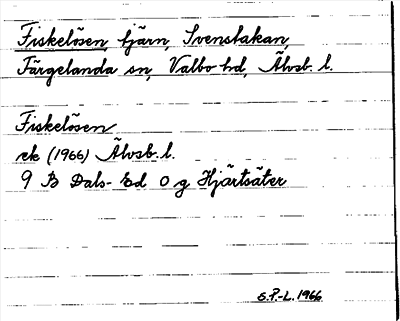 Fiskelösen, tjärn, Svenstakan,
Färgelanda sn, Valbo hd, Älvsb. l.
Fiskelösen
ek (1966) Älvsb. l.
9 B Dals-Ed o g Hjärtsäter
S.P.-L. 1966